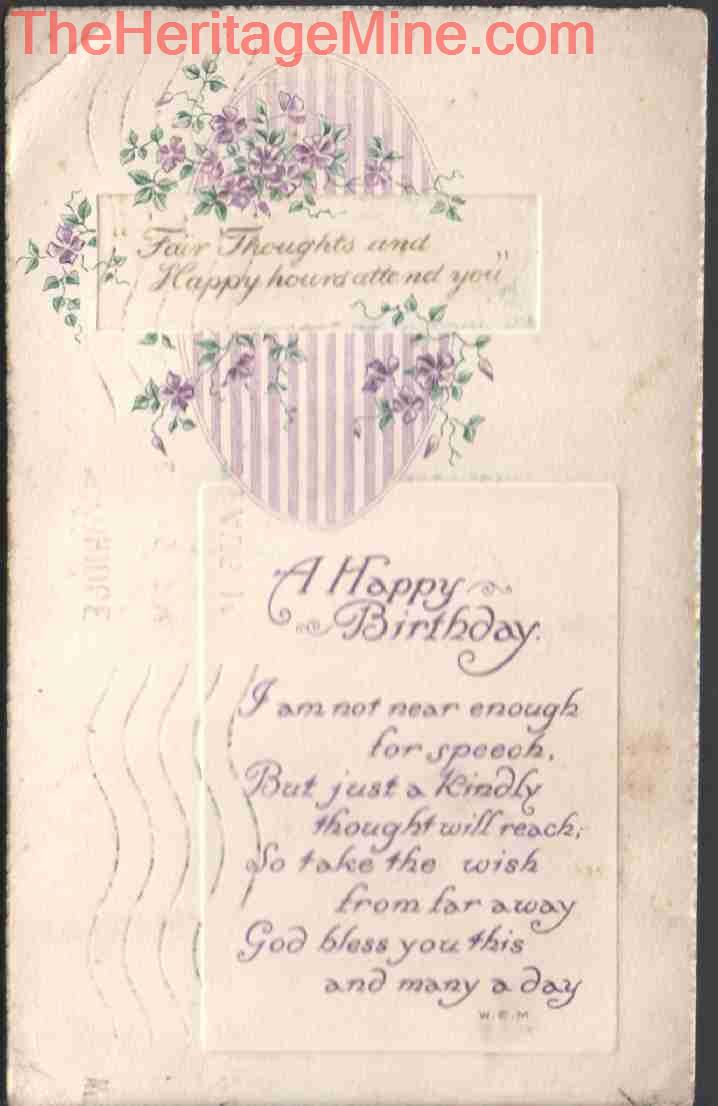 TheHeritageMine.com
"Fair Thoughts and
Happy hours attend you"
A Happy
Birthday.
I am not near enough
for speech,
But just a kindly
thought will reach;
So take the wish
from far away
God bless you this
and many a day
W.E.M